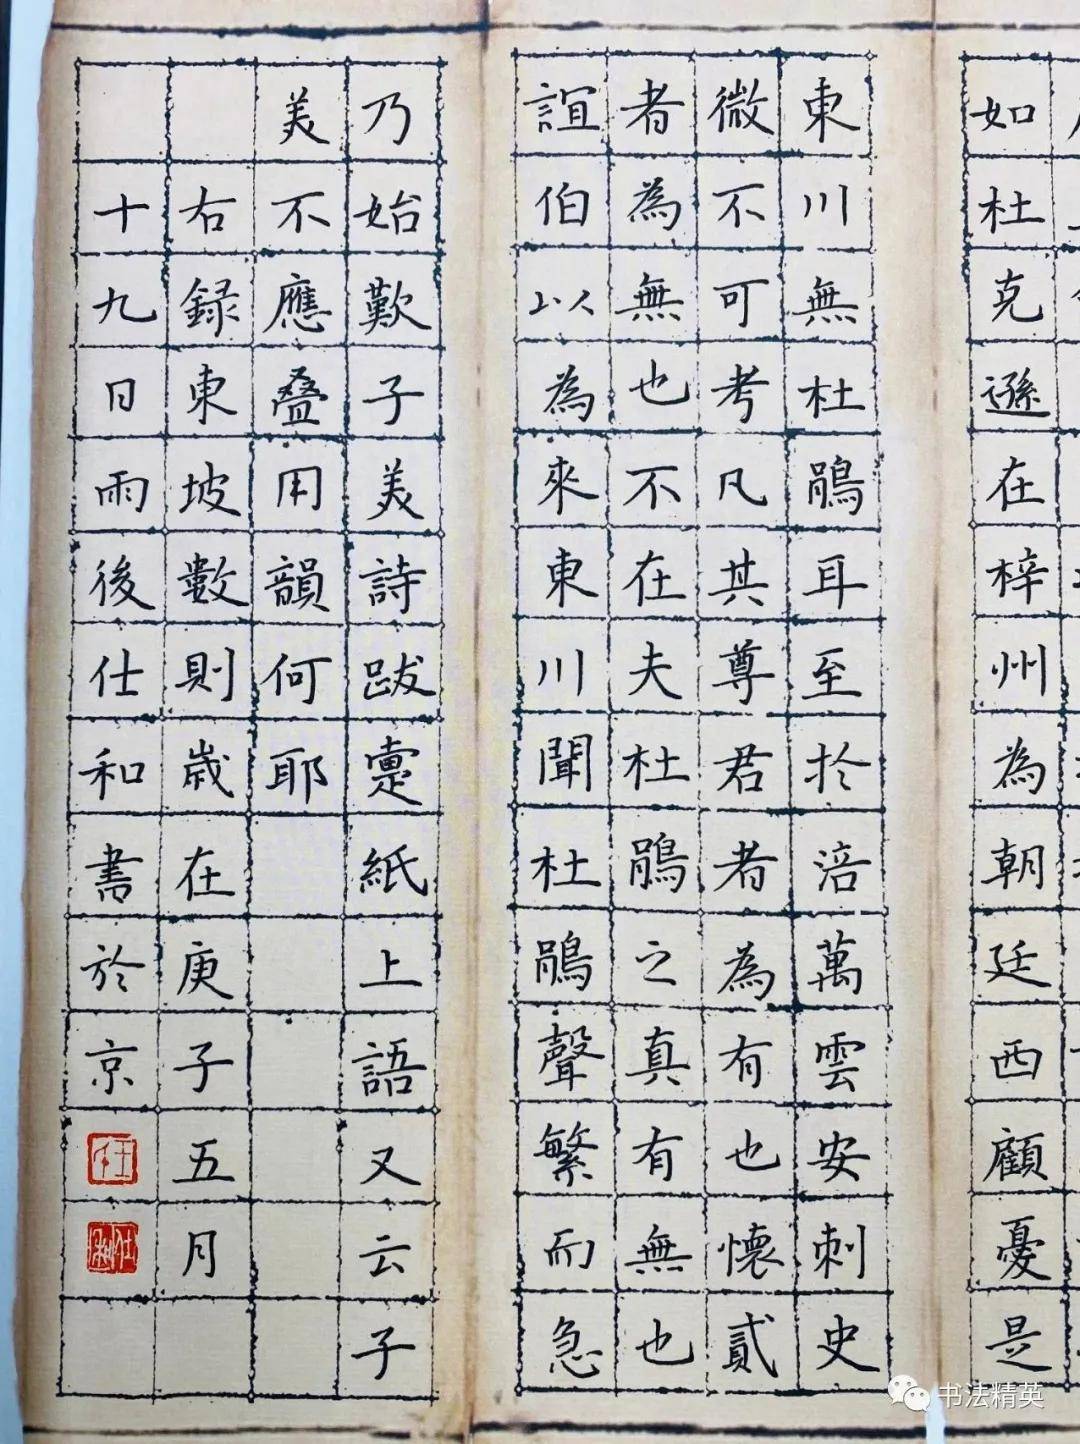 如杜克遜在梓州為朝廷西顧憂是
東川無杜鵑耳至扵涪萬雲安刺史
微不可考凡其尊君者為有也懷貳
者為無也不在夫杜鵑之真有無也
誼伯以為來東川聞杜鵑聲繁而急
乃始歎子美詩跋疐紙上語又云子
美不應叠用韻何耶
右録東坡數則歲在庚子五月
十九日雨後仕和書於京
任
仕和
书法精英